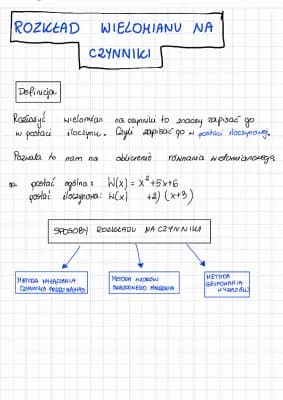 ROZKŁAD WIELOMIANU NA
CZYNNIKI
Definicja
Rozłożyć wielomian na czynniki to znaczy zapisać go
w postaci iloczynu. Czyli zapisać go w postaci iloczynowej.
Pozwala to nam na obliczenie równania wielomianowego.
np. postać ogólna: W(x) = x²+5x+6
postać iloczynowa: W(x) +2)(x+3)
SPOSOBY ROZKŁADU NA CZYNNIKI
METODA WYŁĄCZANIA METODA WZORÓW METODA
CZYNNIKA PRZED NAWIAS SKRÓCONEGO MNOŻENIA GRUPOWANIA
WYRAZÓW